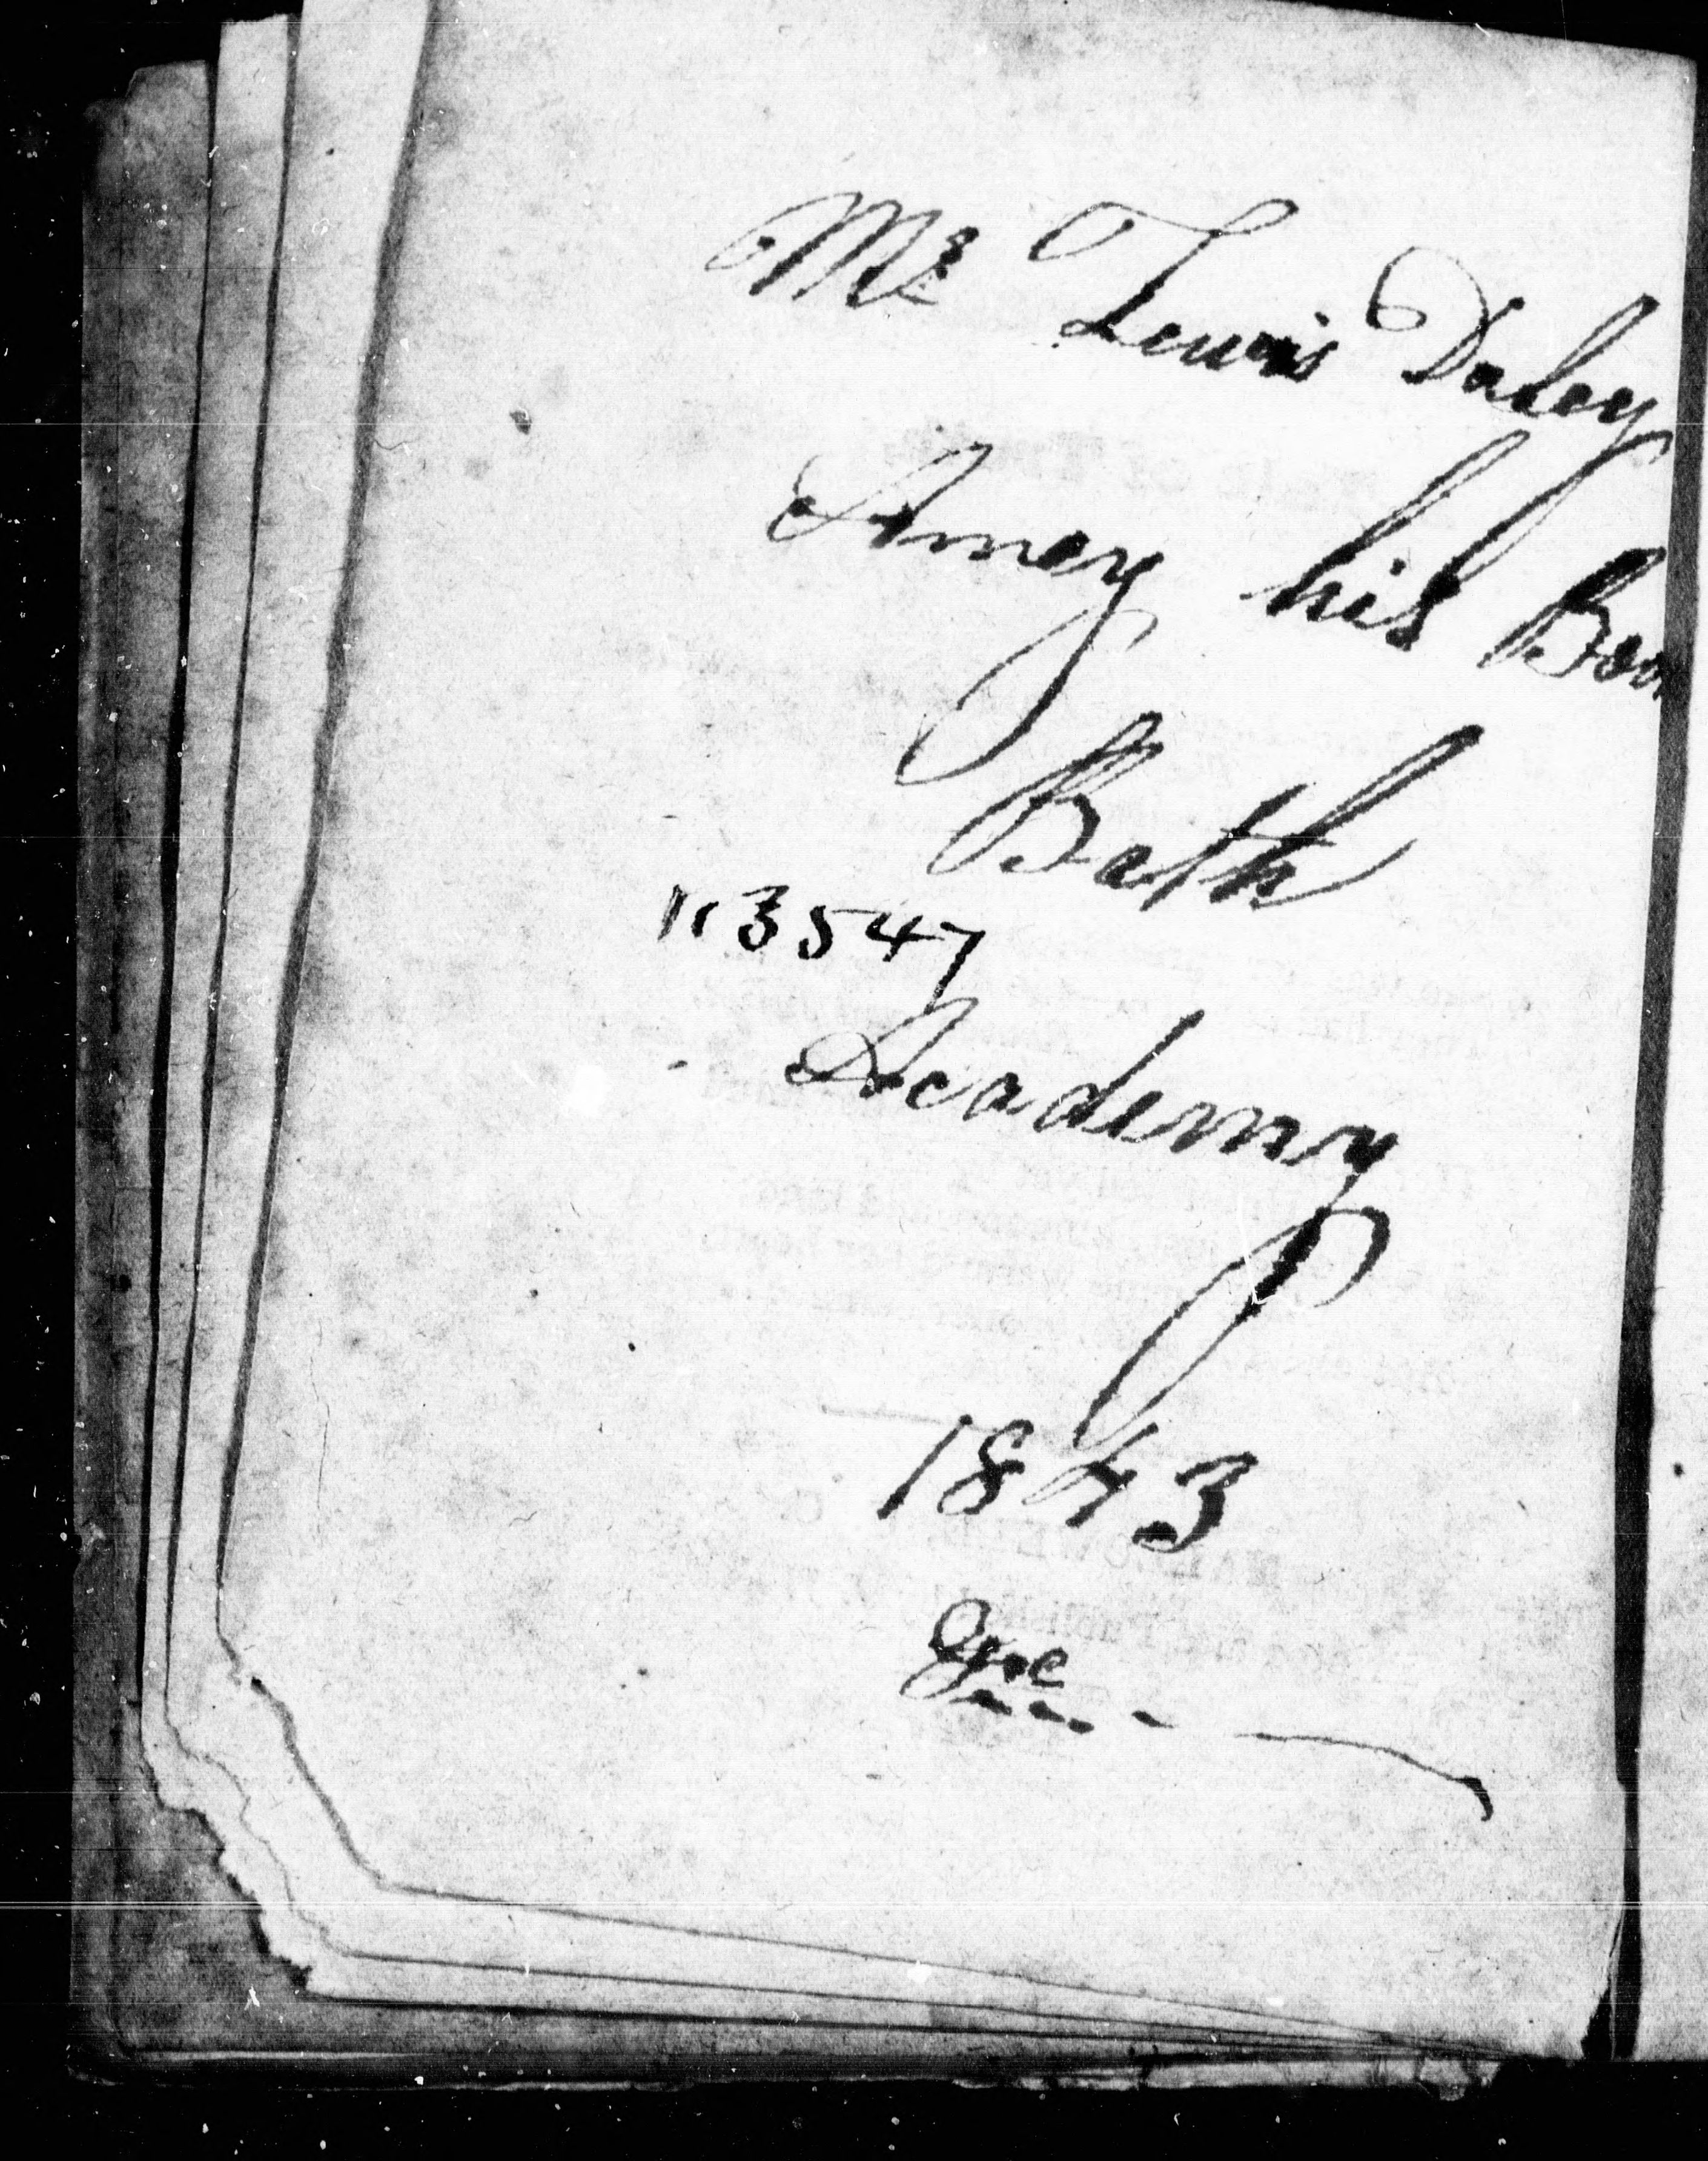 Mr Lewis Daley
Amey his Boo
Bath
113547
Academy
1843